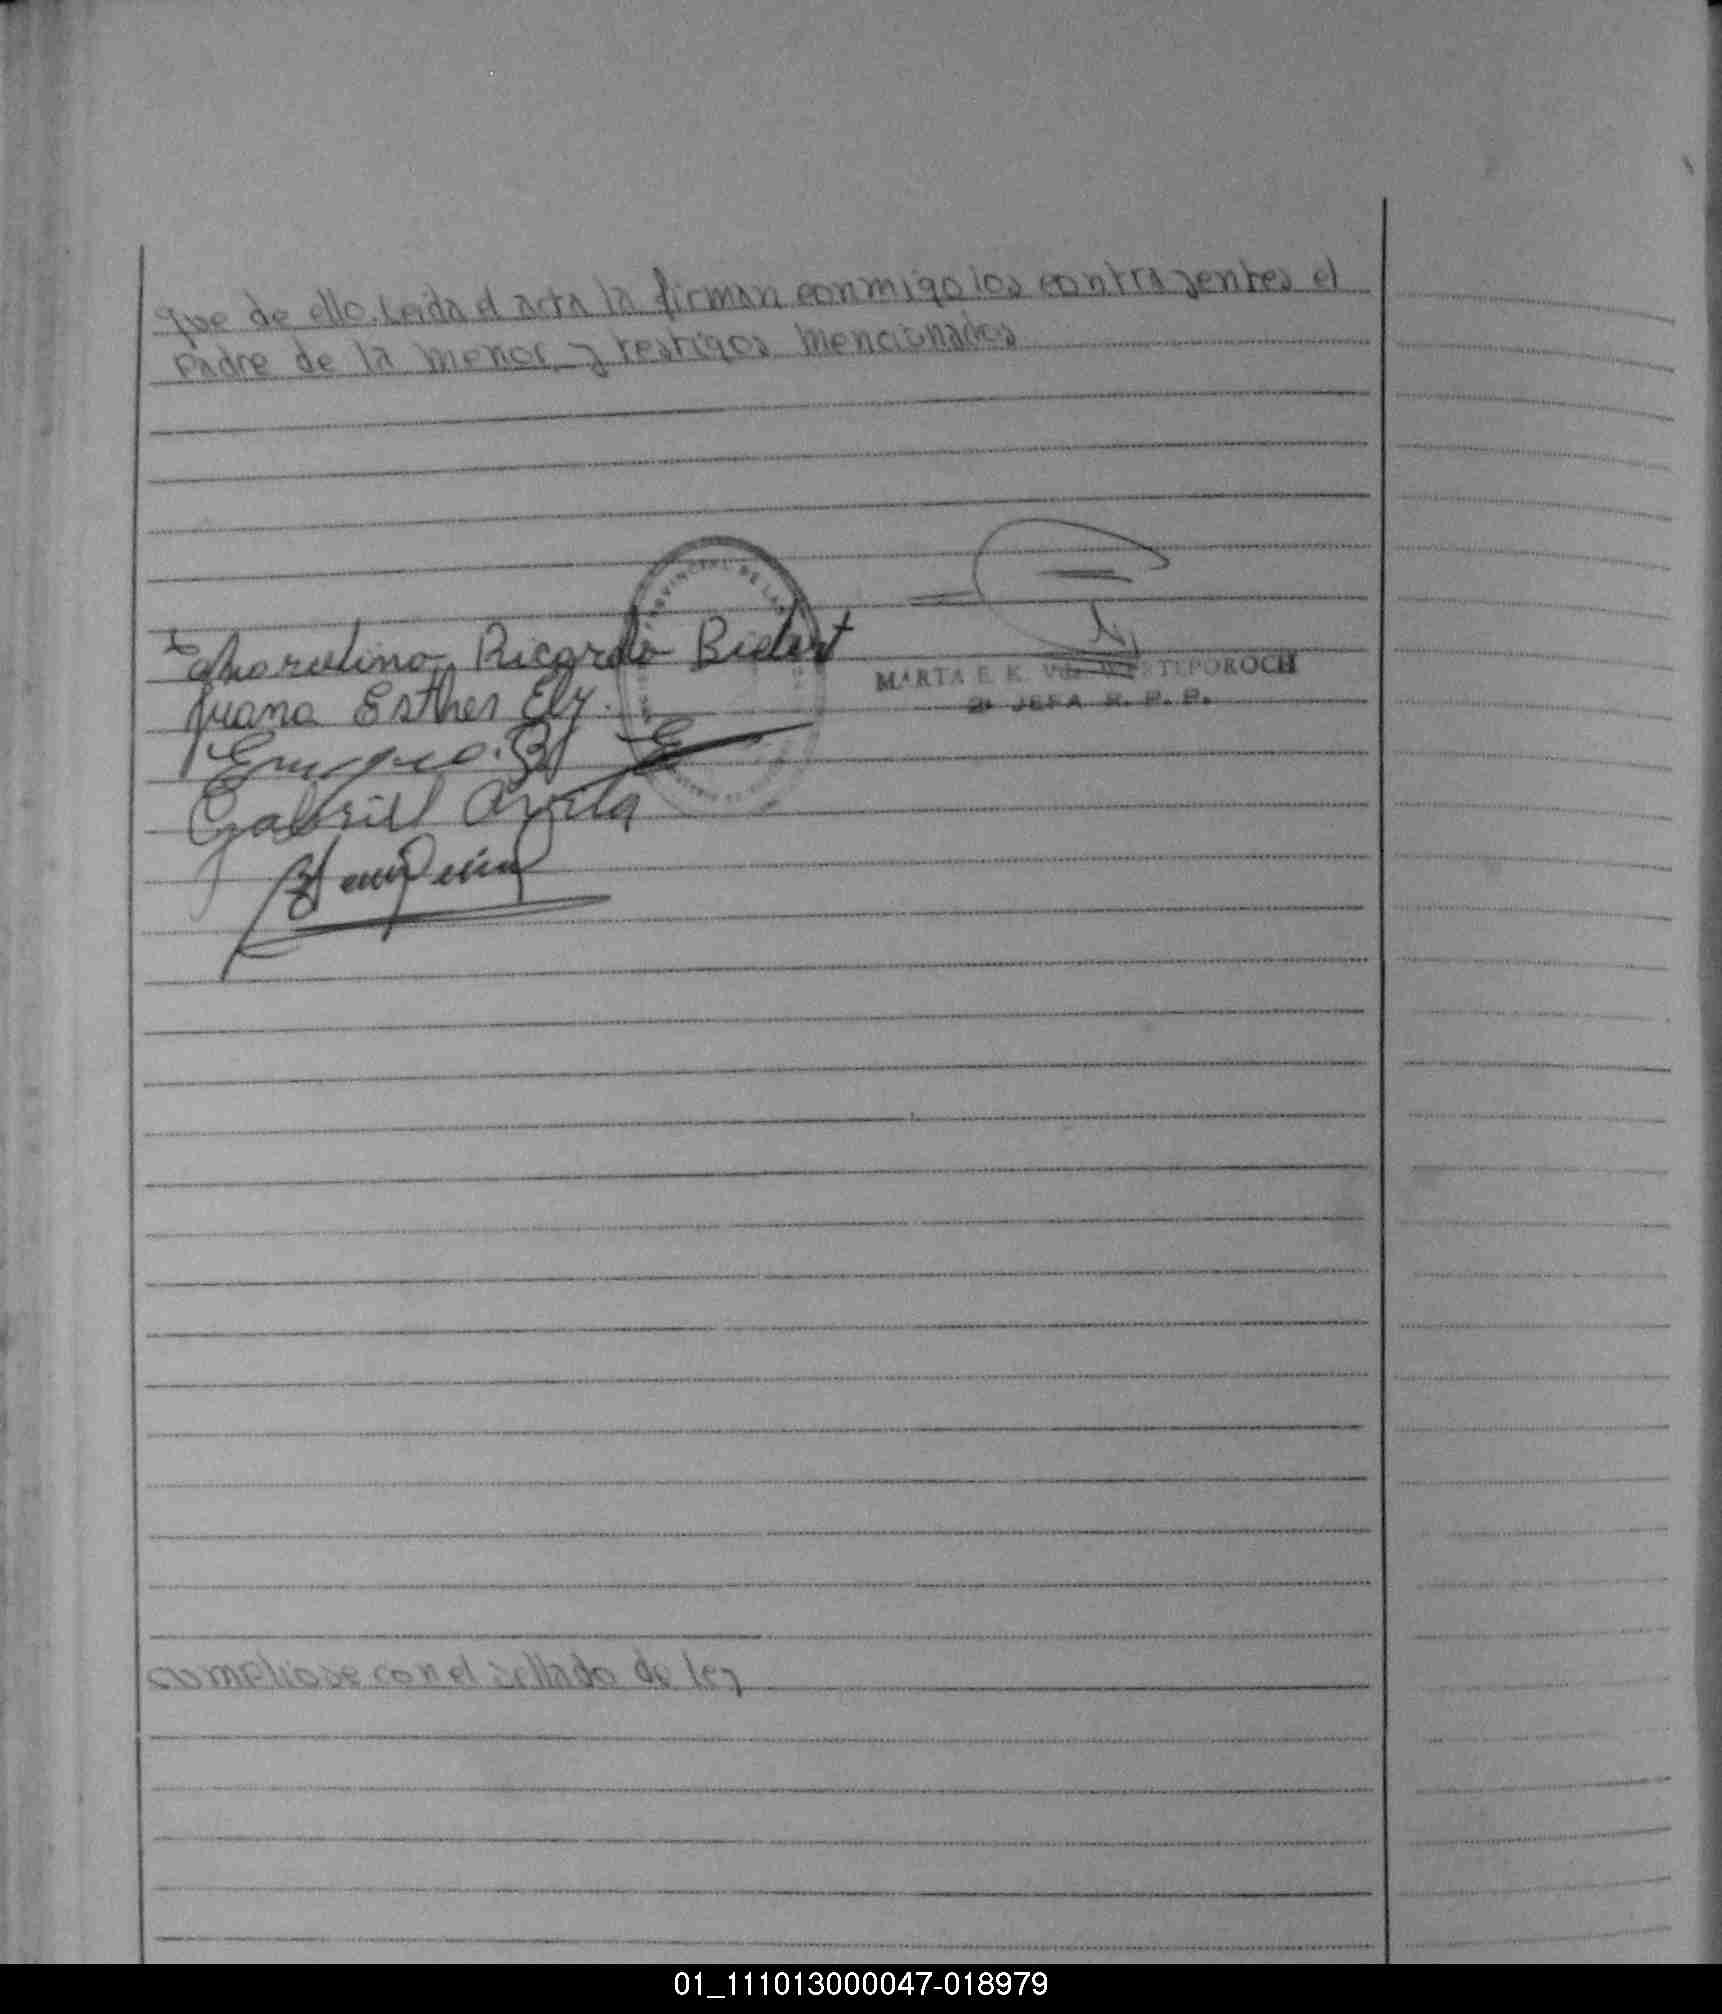 que de ello. Leida el acta la firman conmigo los contrayentes el
Padre de la menor y testigos mencionados
Marcelino Ricardo Bidart
PROVINCIAL DE LA
MARTA E. K. WESTEPOROCH
2ª JEFA R. P. P.
Juana Esther Ely.
Enrique
Gabriel Avila
cumpliose con el sellado de ley
01_111013000047-018979